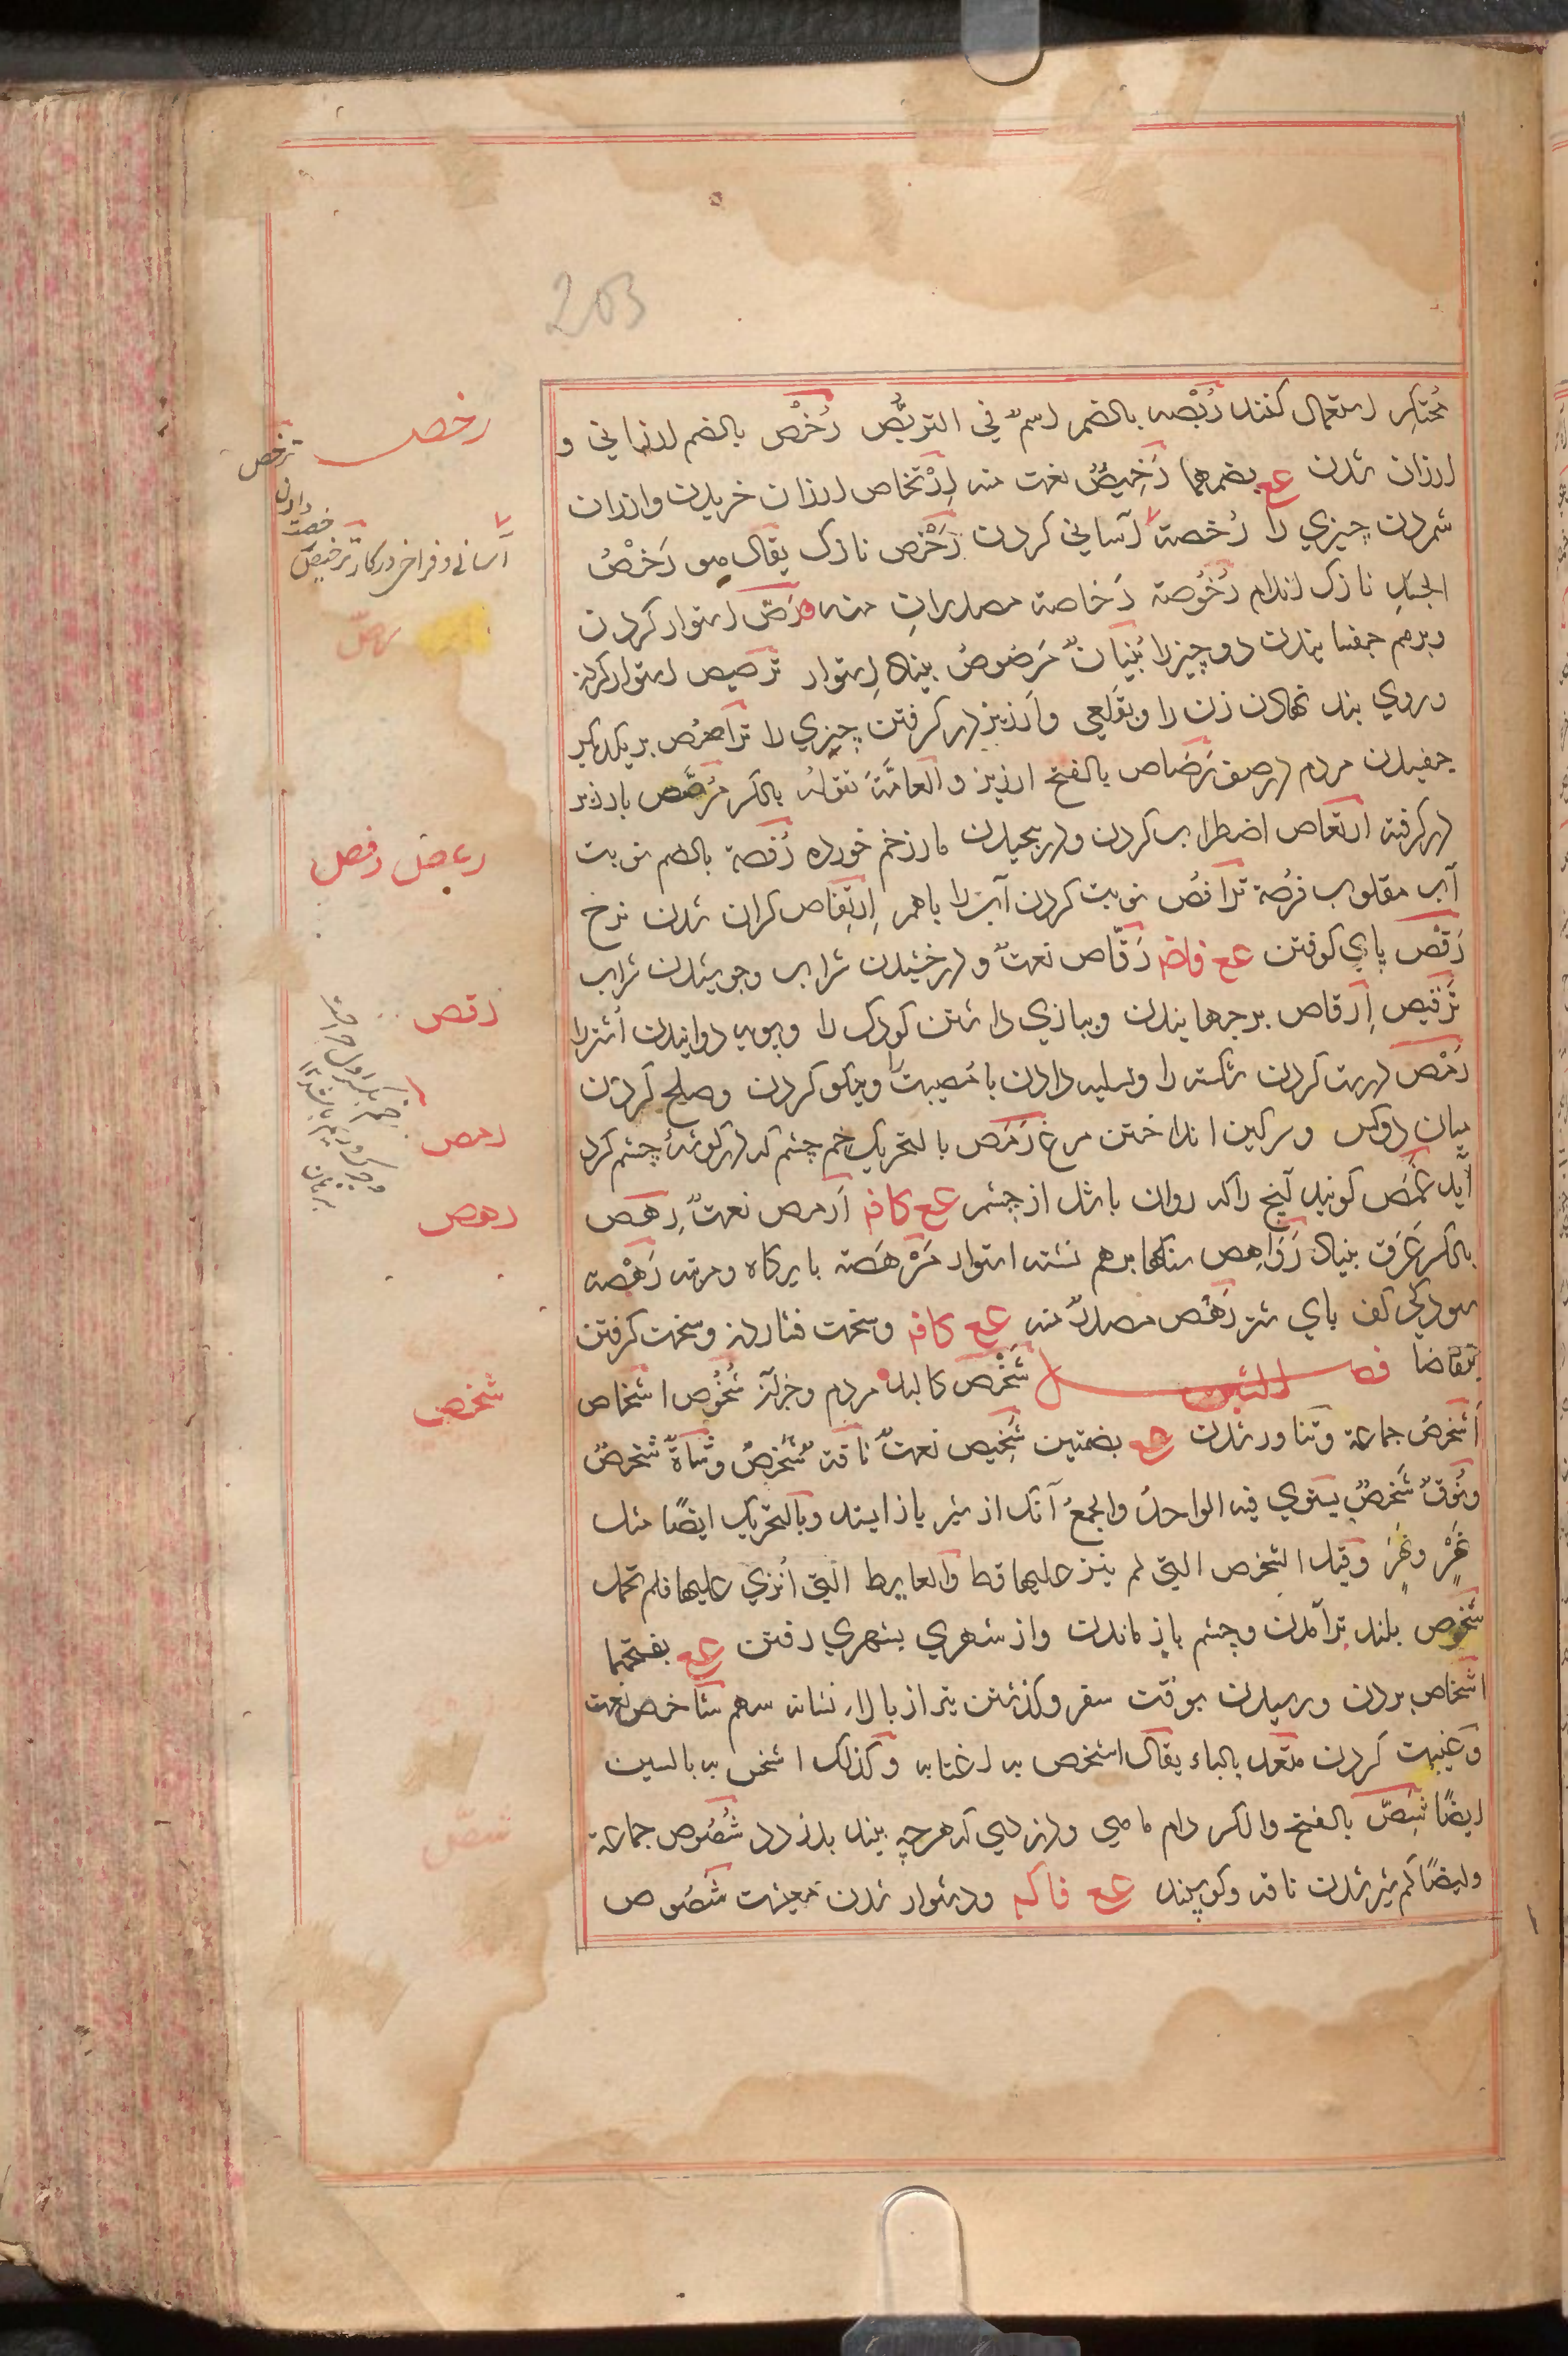 203
محتكر استعمال كنند رُبْصه بالضم اسمٌ في التربُّص رُخْص بالضم ارزاني و
ارزان شدن عع بضمهما رَخِيصٌ نعت منه اِرْتخاص ارزان خريدن وارزان
شمردن چيزي را رُخصة آساني كردن رَخْص نازك يقال هو رَخْصُ
الجسَدِ نازك اندام رُخُوصة رَخاصة مصدرانِ منه رَصّ استوار كردن
وبرهم چفسانيدن دو چيز را بُنْيانٌ مَرصُوصٌ بيناد استوار تَرصيص استوار كردن
وروي بند نهادن زن را وبقَلعي وارزيز در كرفتن چيزي را تَراصُص بر يكديكر
چفيدن مردم در صف رَصَاص بالفتح ارزيز والعامَّةُ تقوله بالكسر مُرَصَّص بارزيز
در كرفته ارتعاص اضطراب كردن ودر پيچيدن مار زخم خورده رُفصة بالضم نوبت
آب مقلوب فُرصة تَرافُص نوبت كردن آب را باهم اِرتِفاص كران شدن نرخ
رَقْص پاي كوفتن عع فاضم رَقّاص نعتٌ ودرخشيدن شراب وجوشيدن شراب
تَرْقيص اِرقاص برجهانيدن وببازي داشتن كودك را وبپويه دوانيدن اُشتر را
رَمْص درست كردن شكسته را وتسليه دادن بامصيبت را ونيكو كردن وصلح كردن
ميان دوكس وسركين انداختن مرغ رَمَص بالتحريك خم چشم كه در كوشهٔ چشم كرد
آيد غَمَص كويند آنچ را كه روان باشد از چشم عع كافم اَرمص نعتٌ رِهص
بالكسر عَرَق بنياد رَوَاهِص سنكها برهم نشسته استوار مَرْهَصة پايكاه ومرتبه رَهْصة
سودكي كف پاي ستور رَهْص مصدرٌ منه عع كافم وسخت فشاردن وسخت كرفتن
بتقاضا فصل الشين شَخْص كالبد مردم وجز آن شُخُوص اشخاص
اَشخُص جماعة وتناور شدن عع بضمتين شَخِيص نعتٌ ناقةٌ شَخْصٌ وشاةٌ شخصٌ
ونُوقٌ شَخصٌ يستوي فيه الواحدُ والجمعُ آنك از شير باز ايستد وبالتحريك ايضًا مثل
نَهْر ونَهَر وقيل الشخص التي لم ينز عليها قط والعايط التي اُنزي عليها فلم تحمل
شُخُوص بلند برآمدن وچشم باز ماندن واز شهري بشهري رفتن عع بفتحهما
اشخاص بردن ورسيدن بوقت سفر وكذشتن تير از بالاء نشانه سهم شاخص نعت
وغيبت كردن متعد بالباء يقال اشخص به اغتابه وكذلك اشخس به بالسين
ايضًا شِصّ بالفتح والكسر دام ماهي ودزدي كه هرچه بيند بدزدد شُصُوص جماعة
وايضًا كم شير شدن ناقه وكوسپند عع فاكم ودشوار شدن معيشت شَصُوص
رخص
ترخص
آساني وفراخي در كار ترخيص
رصّ
رعص رفص
رقص
رمص
رهص
شخص
شصّ